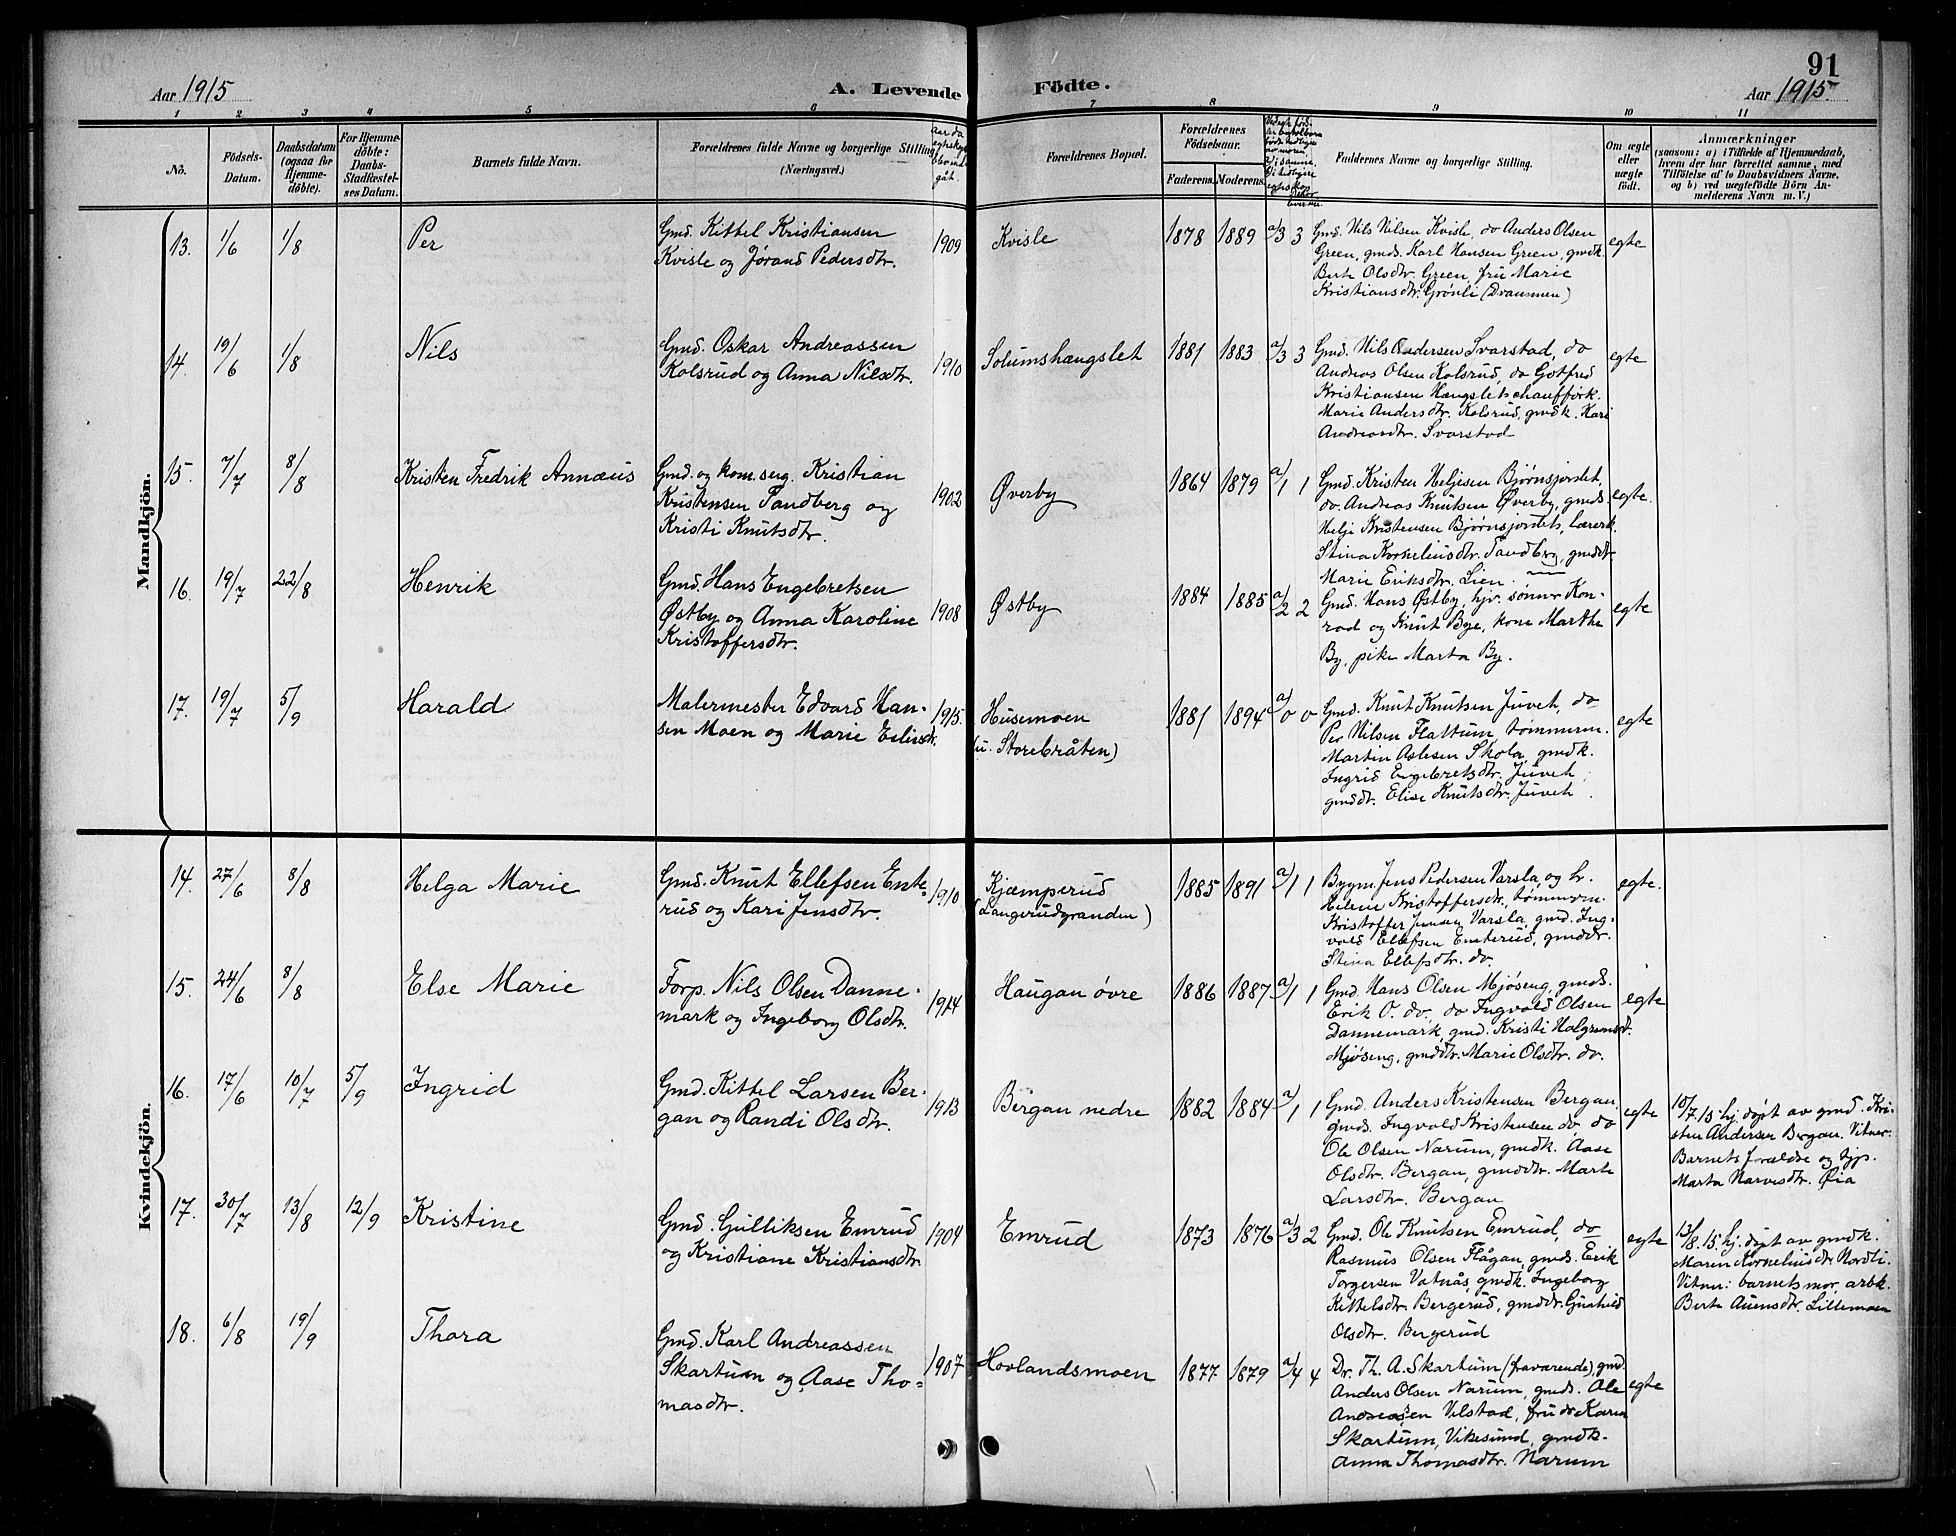 91
Aar 1915
A. Levende Födte.
Aar 1915
1 2 3 4 5 6 7 8 9 10 11
No.
Födsels-
Datum.
Daabsdatum
(ogsaa for
Hjemme-
döbte).
For Hjemme-
döbte:
Daabs-
Stadfæstel-
ses Datum.
Barnets fulde Navn.
Forældrenes fulde Navne og borgerlige Stilling
(Næringsvei.)
Aar da
Forældrenes Bopæl.
Forældrenes
Födselsaar.
Faderens. Moderens.
Faddernes Navne og borgerlige Stilling.
Om ægte
eller
uægte
födt.
Anmærkninger
(saasom: a) i Tilfælde af Hjemmedaab,
hvem der har forrettet samme, med
Tilföielse af to Daabsvidners Navne.
og b) ved uegtefödte Börn An-
melderens Navn m. V.)
Mandkjön.
13. 1/6 1/8 Per
Gmd. Kittel Kristiansen
Kvisle og Jørand Pedersdtr.
1909 Kvisle 1878 1889 a/3 3
Gmd. Nils Nilsen Kvisle, do Anders Olsen
Green, gmds. Karl Hansen Green, gmdk.
Berte Olsdtr. Green, fru Marie
Kristiansdtr. Grønli (Drammen)
egte
14. 19/6 1/8 Nils
Gmd. Oskar Andreassen
Kolsrud og Anna Nilsdtr.
1910 Solumshængslet 1881 1883 a/3 3
Gmd. Nils Andersen Svarstad, do
Andreas Olsen Kolsrud, do Gotfred
Kristiansen Hængslet,
Marie Andersdtr. Kolsrud, gmdk. Kari
Andreasdtr. Svarstad
egte
15. 7/7 8/8 Kristen Fredrik Annæus
Gmd. og kom.serg. Kristian
Kristensen Sandberg og
Kristi Knutsdtr.
1902 Øverby 1864 1879 a/1 1
Gmd. Kristen Heljesen Bjørnsjordet,
do. Andreas Knutsen Øverby, gmds.
Helje Kristensen Bjørnsjordet, lærerk.
Stina Kornheliusdtr. Sandberg, gmddtr.
Marie Eriksdtr. Lien.
egte.
16. 19/7 22/8 Henrik
Gmd. Hans Engebretsen
Østby og Anna Karoline
Kristoffersdtr.
1908 Østby 1884 1885 a/2 2
Gmd. Hans Østby, hjv. sønner Kon-
rad og Knut Bye, kone Marthe
By, pike Marta By.
egte
17. 19/7 5/9 Harald
Malermester Edvard Han-
sen Moen og Marie
1915 Husemoen
(u. Storebråten)
1881 1894 a/0 0
Gmd. Knut Knutsen Juveh, do
Per Nilsen Flattum, tømmerm.
Martin Aslesen Skola, gmdk.
Ingrid Engebretsdtr. Juveh,
gmddtr. Elise Knutsdtr. Juveh.
egte
Kvindekjön.
14. 27/6 8/8 Helga Marie
Gmd. Knut Ellefsen Ente-
rud og Kari Jensdtr.
1910 Kjæmperud
(Langerudgranden)
1885 1891 a/1 1
Bygm. Jens Pedersen Varsla og h.
Helene Kristoffersdtr., tømmerm.
Kristoffer Jensen Varsla, gmd. Ing-
vald Ellefsen Enterud, gmddtr.
Stina Ellefsdtr. do.
egte.
15. 24/6 8/8 Else Marie
Forp. Nils Olsen Danne-
mark og Ingeborg Olsdtr.
1914 Haugan øvre 1886 1887 a/1 1
Gmd. Hans Olsen Mjøseng, gmds.
Erik O. do., do Ingvald Olsen
Dannemark, gmd. Kristi Halgrimsdtr.
Mjøseng, gmddtr. Marie Olsdtr. do.
egte
16. 17/6 10/7 5/9 Ingrid
Gmd. Kittel Larsen Ber-
gan og Randi Olsdtr.
1913 Bergan nedre 1882 1884 a/1 1
Gmd. Anders Kristensen Bergan,
gmds. Ingvald Kristensen do, do
Ole Olsen Narum, gmdk. Aase
Olsdtr. Bergan, gmddtr. Marte
Larsdtr. Bergan
egte
10/7. 15 hj. døpt av gmd. Kri-
sten Andersen Bergan. Vitner:
Barnets forældre og
Marta Narvesdtr. Øia
17. 30/7 13/8 12/9 Kristine
Gmd. Gulliksen Emrud
og Kristiane Kristiansdtr.
1904 Emrud 1873 1876 a/3 2
Gmd. Ole Knutsen Emrud, do
Rasmus Olsen Flågan, gmds. Erik
Torgersen Vatnås, gmdk. Ingeborg
Kittelsdtr. Bergerud, gmddtr. Gunhild
Olsdtr. Bergerud
egte
13/8. 15. hj. døpt av gmdk.
Maren Korneliusdtr. Nordli.
Vitner: barnets mor, arbk.
Berte Auensdtr. Lillemoen
18. 6/8 19/9 Thora
Gmd. Karl Andreassen
Skartum og Aase Tho-
masdtr.
1907 Hovlandsmoen 1877 1879 a/4 4
Dr. Th. A. Skartum (fraværende), gmd.
Anders Olsen Narum, gmds. Ole
Andreassen Vilstad, fru dr Karen
Skartum, Vikesund, gmdk.
Anna Thomasdtr. Narum
egte